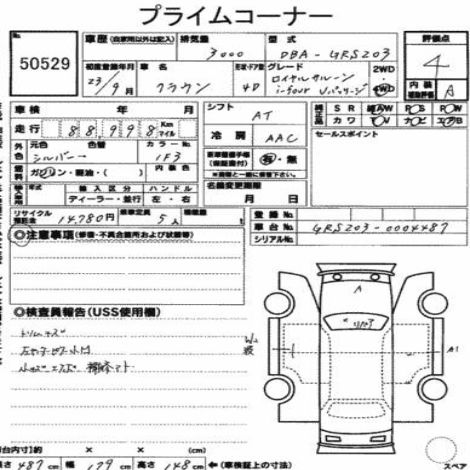 プライムコーナー
No.
50529
車歴(自家用以外は記入)
排気量
3000
型式
DBA-GRS203
評価点
4
初度登録年月
23/9月
車名
クラウン
形状・ドア数
4D
グレード
ロイヤルサルーン
i-four Uパッケージ
2WD
4WD
内装
A
車検 年 月
シフト
AT
純正
SR AW PS PW
カワ TV ナビ エアB
走行
88998
Km
マイル
冷房
AAC
セールスポイント
外色
元色
シルバー
色替
カラーNo.
1F3
有・無
燃料
ガソリン・軽油・( )
内装色
※書類と一緒にご提出ください。
名義変更期限
月 日
輸入車
年式
輸入区分
ディーラー・並行
ハンドル
左・右
リサイクル
預託金
14,780円
乗車定員
5人
積載量
登録No.
車台No.
GRS203-0004487
シリアルNo.
◎注意事項(修復・不具合箇所および状態等)
◎検査員報告(USS使用欄)
トリムキズ
小キズ エクボ
A
A1
リペア
(cm)
長さ 487 cm 幅 179 cm 高さ 148 cm ←(車検証上の寸法)
スペア